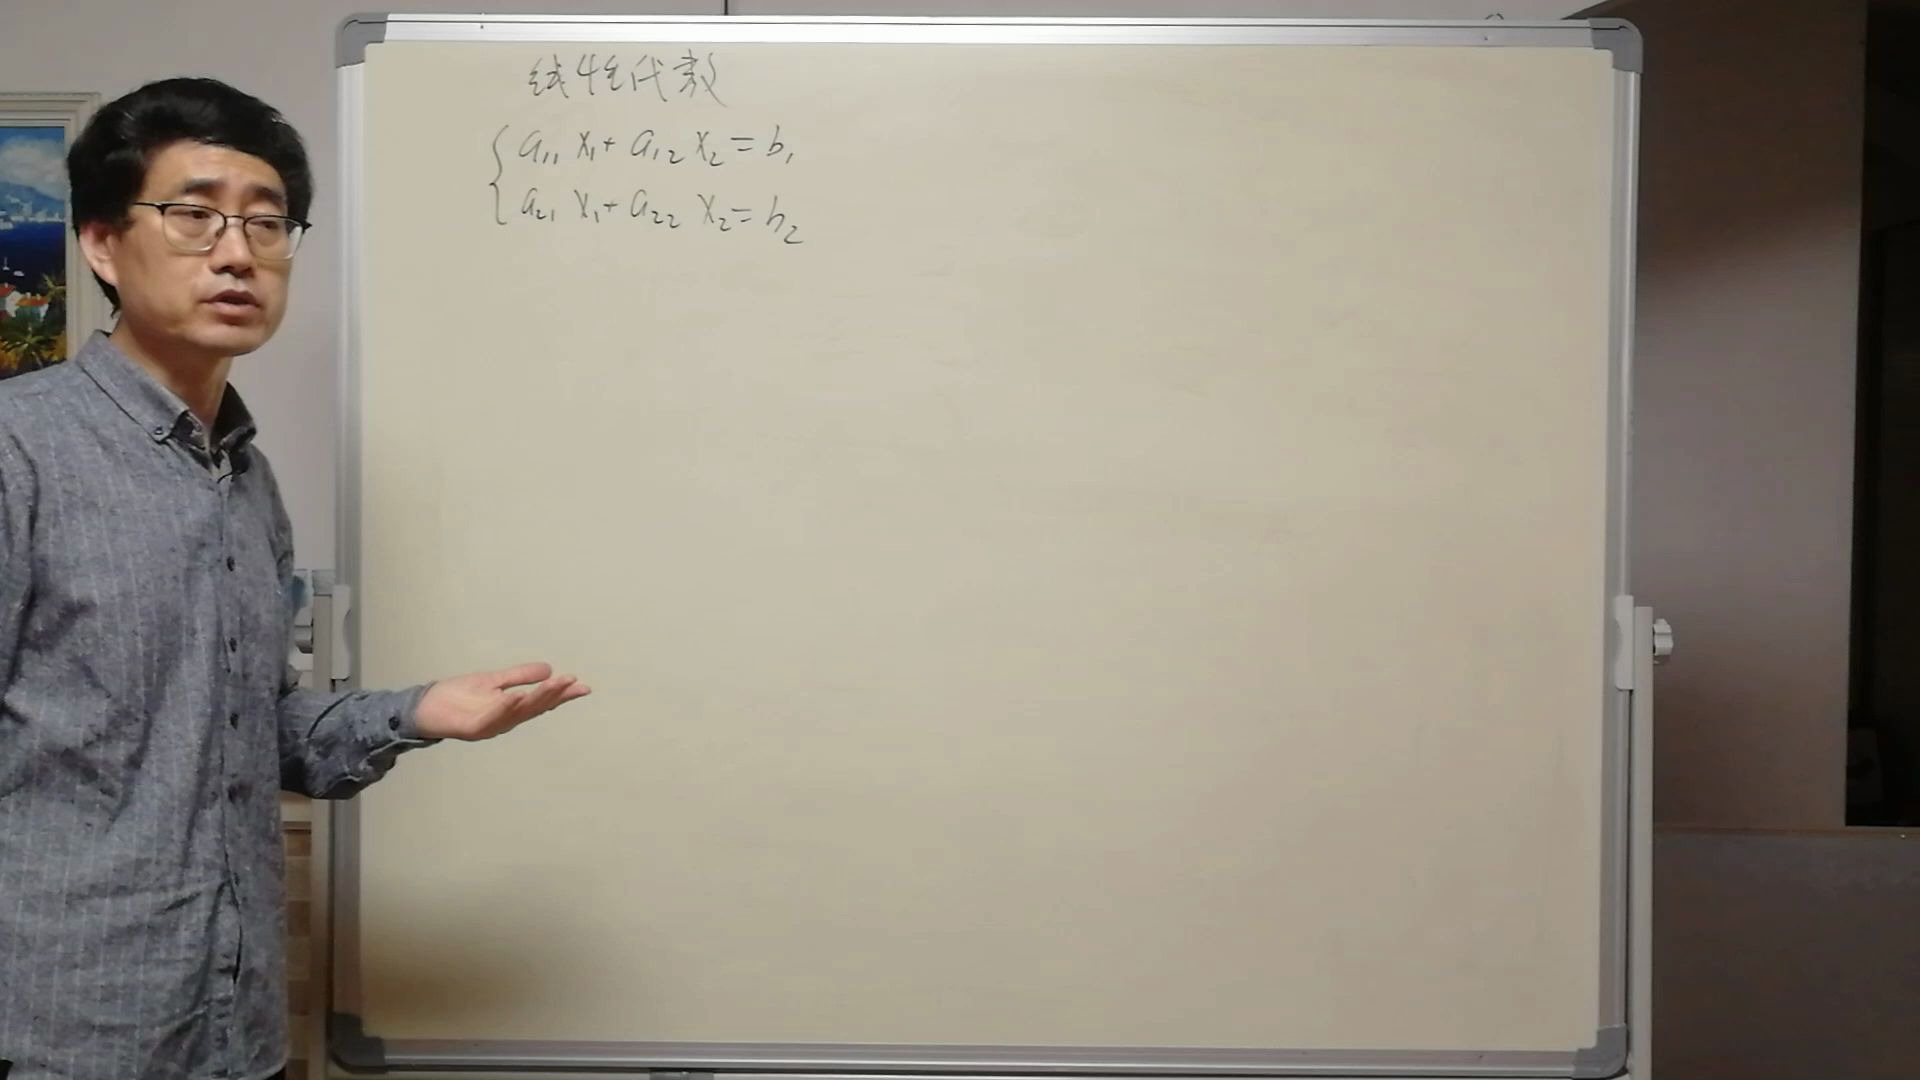 线性代数
a₁₁ x₁ + a₁₂ x₂ = b₁
a₂₁ x₁ + a₂₂ x₂ = b₂